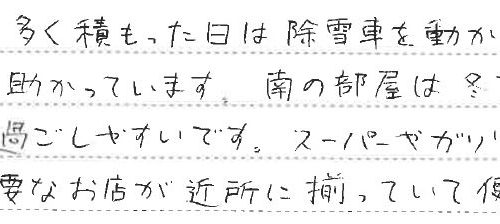 多く積もった日は除雪車を動か
助かっています。南の部屋は冬
過ごしやすいです。スーパーやガソリ
要なお店が近所に揃っていて